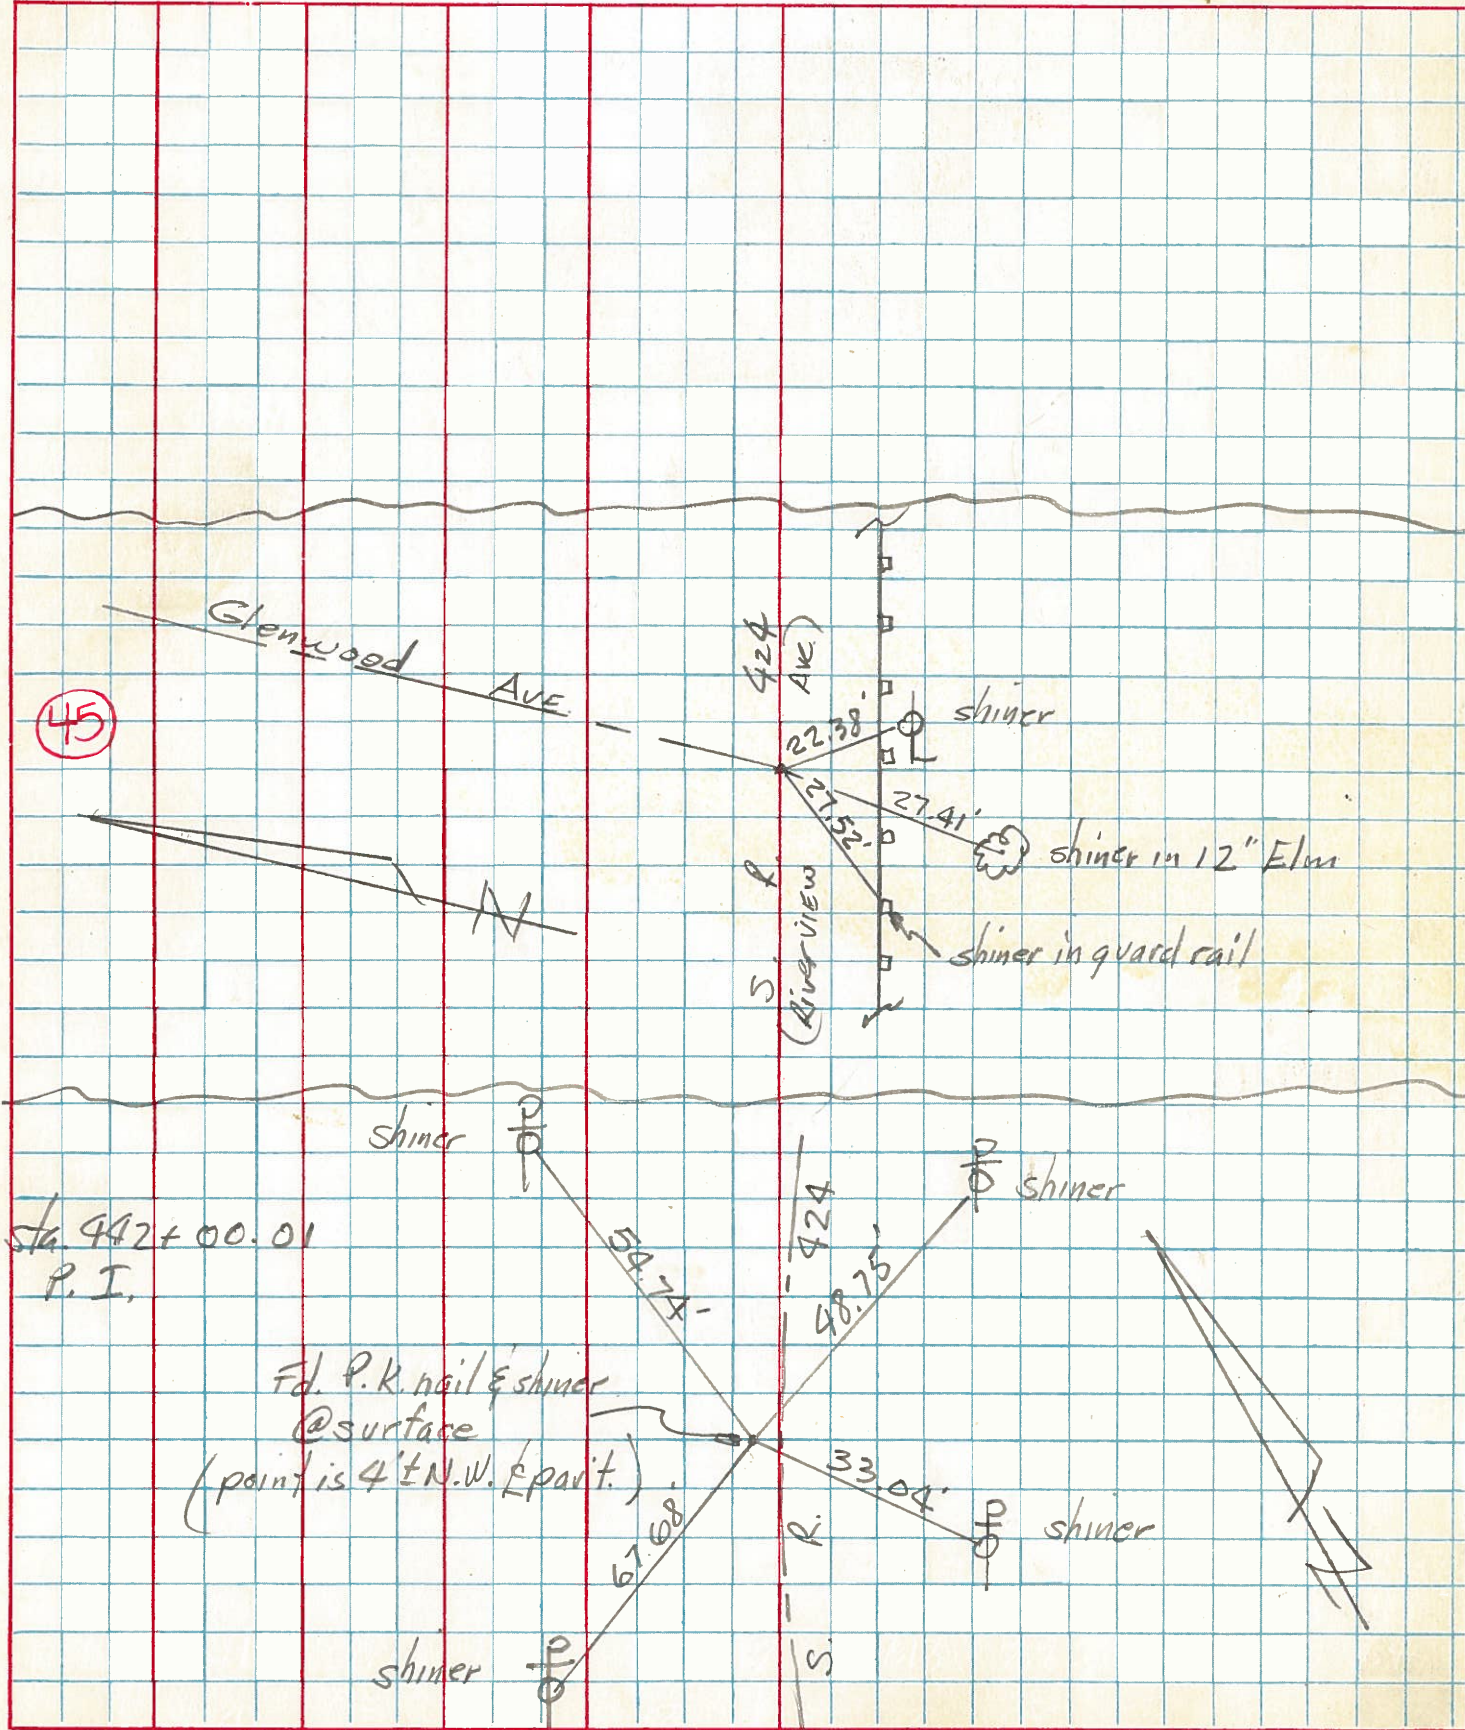 Glenwood Ave.
45
S. R. 424
(Riverview Ave.)
22.38'
shiner
27.52'
27.41'
shiner in 12" Elm
shiner in guard rail
N
shiner
P
P
shiner
Sta. 442+00.01
P.I.
54.74'
424
48.75'
Fd. P.K. nail & shiner
@ surface
(point is 4'± N.W. ℄ pav't.)
33.04'
P
shiner
67.68'
S. R.
N
shiner
P